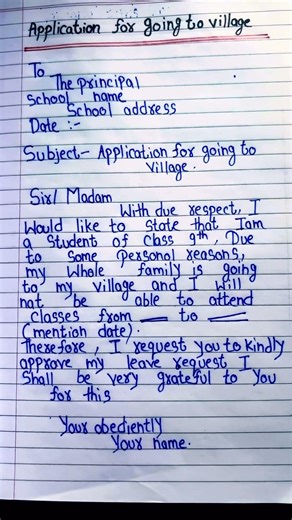 Application for going to village
To
The principal
School name
School address
Date :-
Subject:- Application for going to
Village.
Sir/ Madam
With due respect, I
Would like to State that Iam
a Student of Class 9th, Due
to Some Personal reasons,
my Whole family is going
to my village and I Will
not be able to attend
classes from — to —
(mention date).
Therefore, I request you to kindly
approve my leave request I
Shall be very grateful to You
for this
Your obediently
Your name.